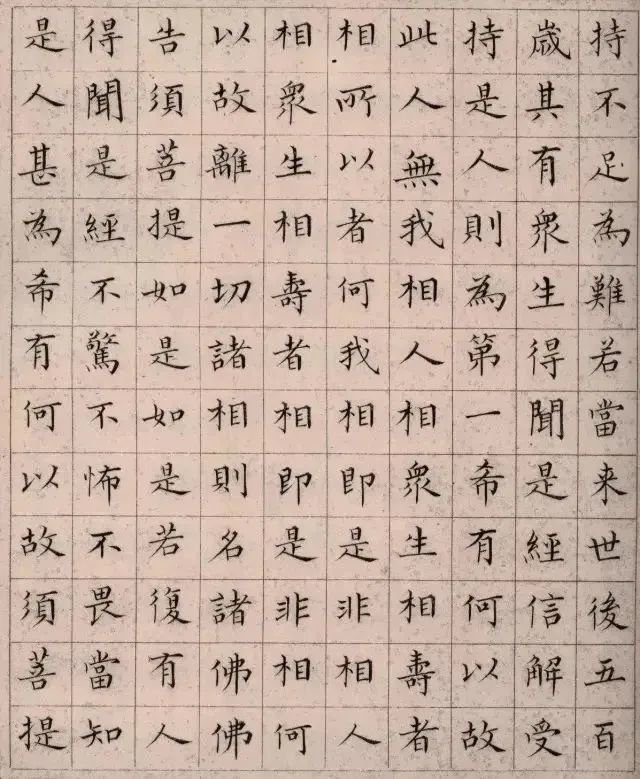 持不足為難若當来世後五百
歲其有衆生得聞是經信解受
持是人則為第一希有何以故
此人無我相人相衆生相壽者
相所以者何我相即是非相人
相衆生相壽者相即是非相何
以故離一切諸相則名諸佛佛
告須菩提如是如是若復有人
得聞是經不驚不怖不畏當知
是人甚為希有何以故須菩提